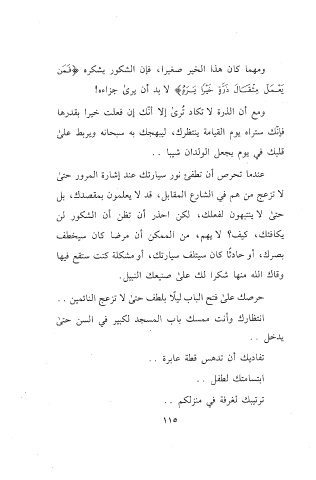 ومهما كان هذا الخير صغيرا، فإن الشكور يشكره ﴿فَمَن
يَعْمَلْ مِثْقَالَ ذَرَّةٍ خَيْرًا يَرَهُ﴾ لا بد أن يرىٰ جزاءه!
ومع أن الذرة لا تكاد تُرىٰ إلا أنّك إن فعلت خيرا بقدرها
فإنّك ستراه يوم القيامة ينتظرك، ليبهجك به سبحانه ويربط علىٰ
قلبك في يوم يجعل الولدان شيبا . .
عندما تحرص أن تطفئ نور سيارتك عند إشارة المرور حتىٰ
لا تزعج من هم في الشارع المقابل، قد لا يعلمون بمقصدك، بل
حتىٰ لا ينتبهون لفعلك، لكن احذر أن تظن أن الشكور لن
يكافئك، كيف؟ لا يهم، من الممكن أن مرضا كان سيخطف
بصرك، أو حادثًا كان سيتلف سيارتك، أو مشكلة كنت ستقع فيها
وقاك الله منها شكرا لك علىٰ صنيعك النبيل.
حرصك علىٰ فتح الباب ليلًا بلطف حتىٰ لا تزعج النائمين . .
انتظارك وأنت ممسك باب المسجد لكبير في السن حتىٰ
يدخل . .
تفاديك أن تدهس قطة عابرة . .
ابتسامتك لطفل . .
ترتيبك لغرفة في منزلكم . .
١١٥